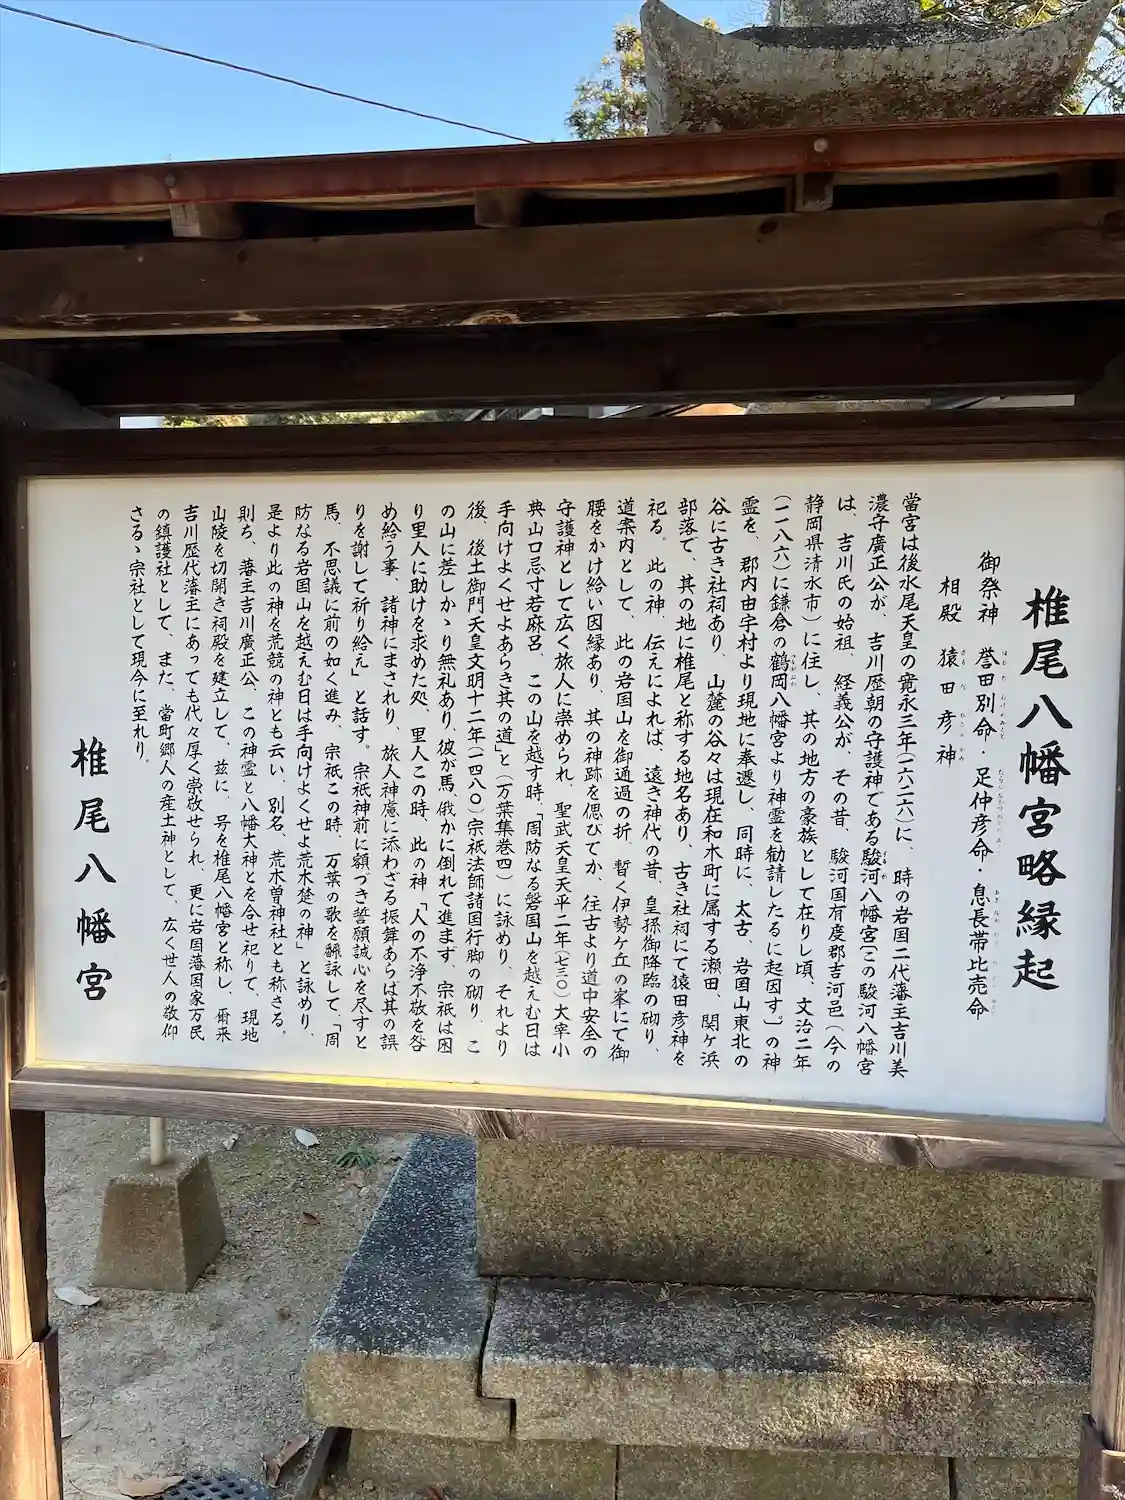 椎尾八幡宮略縁起
御祭神 誉田別命・足仲彦命・息長帯比売命
相殿 猿田彦神
當宮は後水尾天皇の寛永三年(一六二六)に、時の岩国二代藩主吉川美
濃守廣正公が、吉川歴朝の守護神である駿河八幡宮(この駿河八幡宮
は、吉川氏の始祖、経義公が、その昔、駿河国有度郡吉河邑(今の
静岡県清水市)に住し、其の地方の豪族として在りし頃、文治二年
(一一八六)に鎌倉の鶴岡八幡宮より神霊を勧請したるに起因す。)の神
霊を、郡内由宇村より現地に奉遷し、同時に、太古、岩国山東北の
谷に古き社祠あり、山麓の谷々は現在和木町に属する瀬田、関ヶ浜
部落で、其の地に椎尾と称する地名あり、古き社祠にて猿田彦神を
祀る。此の神、伝えによれば、遠き神代の昔、皇孫御降臨の砌り、
道案内として、此の岩国山を御通過の折、暫く伊勢ヶ丘の峯にて御
腰をかけ給い因縁あり、其の神跡を偲びてか、往古より道中安全の
守護神として広く旅人に崇められ、聖武天皇天平二年(七三〇)大宰小
典山口忌寸若麻呂、この山を越す時、「周防なる磐国山を越えむ日は
手向けよくせよあらき其の道」と(万葉集巻四)に詠めり、それより
後、後土御門天皇文明十二年(一四八〇)宗祇法師諸国行脚の砌り、こ
の山に差しかゝり無礼あり、彼が馬、俄かに倒れて進まず、宗祇は困
り里人に助けを求めた処、里人この時、此の神「人の不浄不敬を咎
め給う事、諸神にまされり、旅人神慮に添わざる振舞あらば其の誤
りを謝して祈り給え」と話す。宗祇神前に額づき誓願誠心を尽すと
馬、不思議に前の如く進み、宗祇この時、万葉の歌を飜詠して、「周
防なる岩国山を越えむ日は手向けよくせよ荒木楚の神」と詠めり、
是より此の神を荒競の神とも云い、別名、荒木曽神社とも称さる。
則ち、藩主吉川廣正公、この神霊と八幡大神とを合せ祀りて、現地
山陵を切開き祠殿を建立して、茲に、号を椎尾八幡宮と称し、爾来
吉川歴代藩主にあっても代々厚く崇敬せられ、更に岩国藩国家万民
の鎮護社として、また、當町郷人の産土神として、広く世人の敬仰
さるゝ宗社として現今に至れり。
椎尾八幡宮